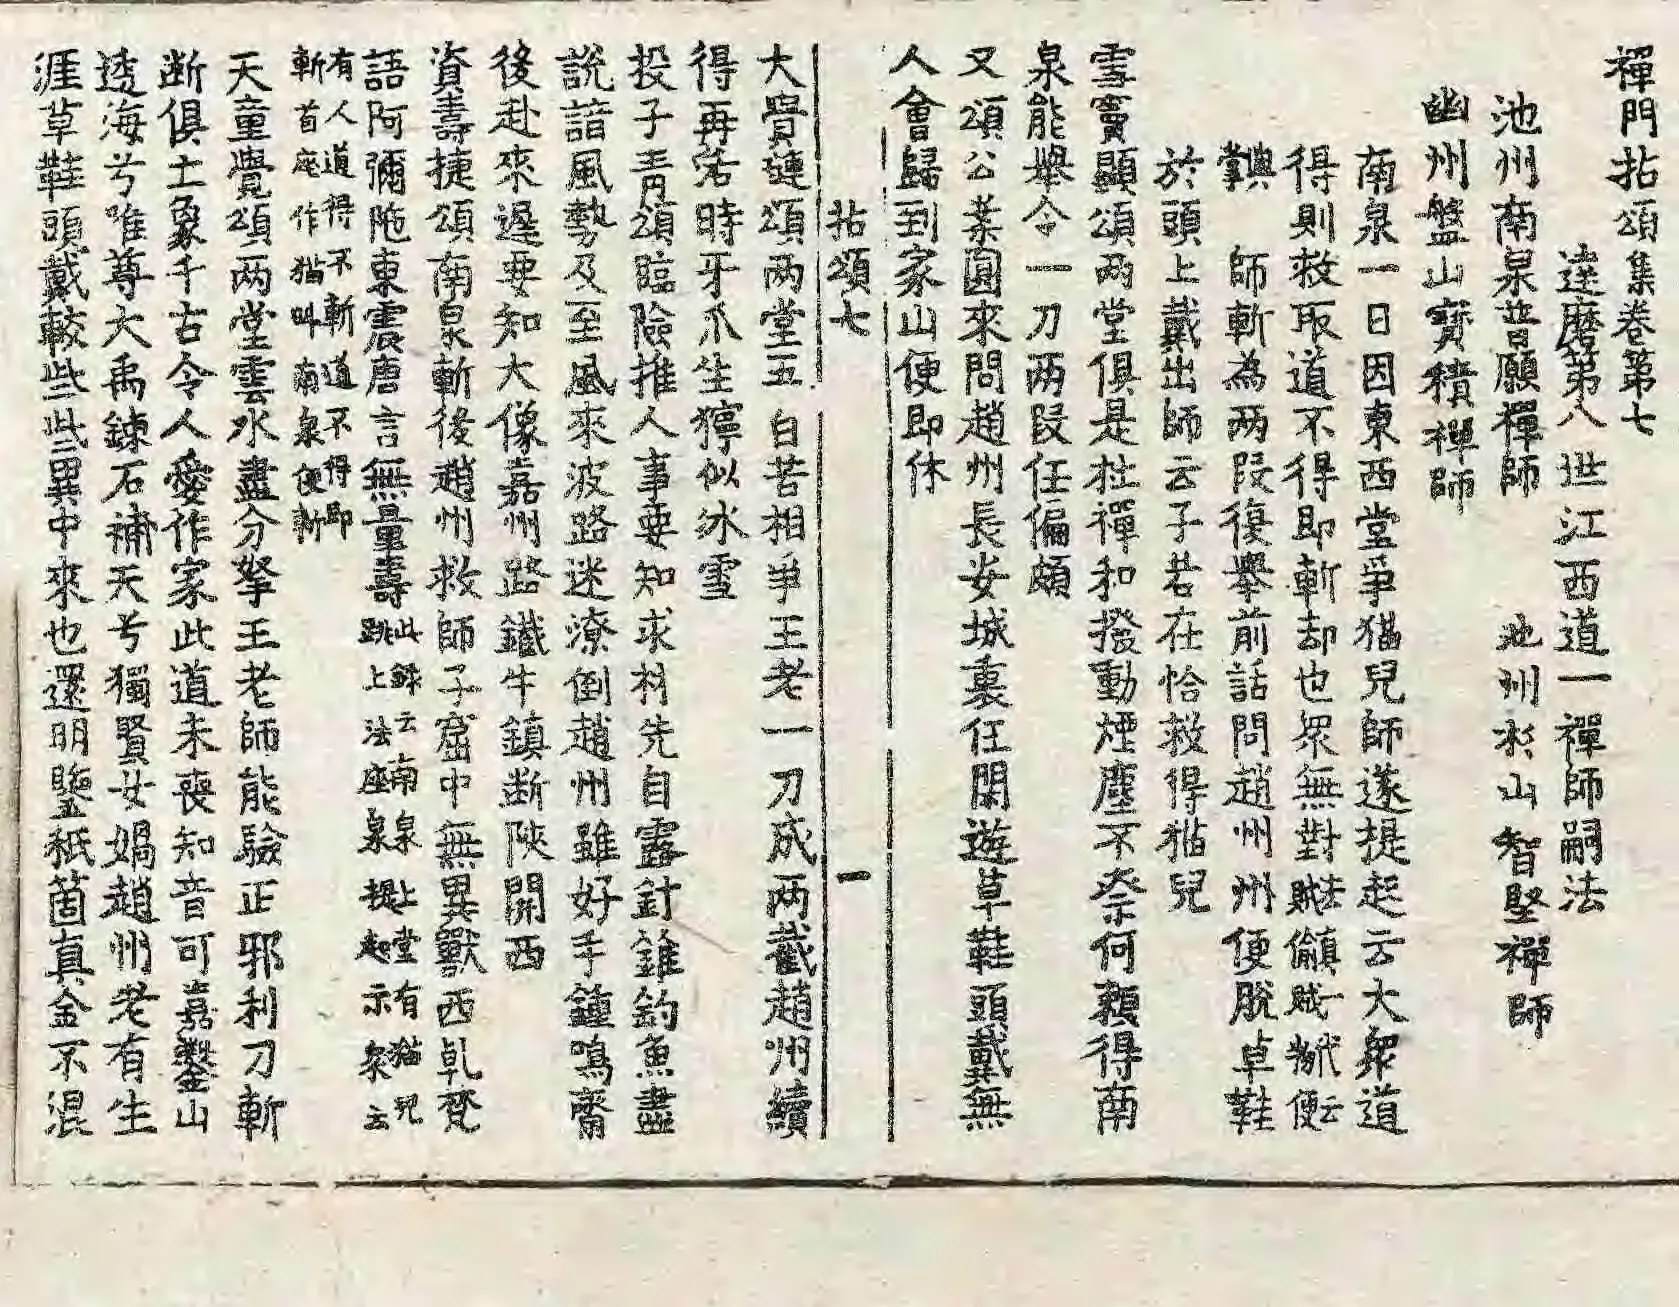 禪門拈頌集卷第七
達磨第八世江西道一禪師嗣法
池州南泉普願禪師　池州杉山智堅禪師
幽州盤山寶積禪師
南泉一日因東西堂爭猫兒師遂提起云大衆道
得則救取道不得即斬却也衆無對法眞一代云賊偸賊物便
與掌　師斬為兩段復擧前話問趙州州便脫草鞋
於頭上戴出師云子若在恰救得猫兒
雪竇顯頌兩堂俱是杜禪和撥動煙塵不奈何賴得南
泉能擧令一刀兩段任偏頗
又頌公案圓來問趙州長安城裏任閑遊草鞋頭戴無
人會歸到家山便即休
拈頌七　一
大覺璉頌兩堂五百苦相爭王老一刀成兩截趙州續
得再活時牙爪生獰似氷雪
投子靑頌臨險推人事要知求材先自露針錐釣魚盡
說諳風勢及至風來波路迷潦倒趙州雖好手鐘鳴齋
後赴來遲要知大像嘉州路鐵牛鎭断陝開西
資壽捷頌南泉斬後趙州救師子窟中無異獸西乹梵
語阿彌陁東震唐言無量壽此錄云南泉上堂有猫兒跳上法座泉提起示衆云
有人道得不斬道不得即斬首座作猫叫南泉便斬
天童覺頌兩堂雲水盡分拏王老師能驗正邪利刀斬
断俱亡象千古令人愛作家此道未喪知音可嘉鑿山
透海兮唯尊大禹鍊石補天兮獨賢女媧趙州老有生
涯草鞋頭戴較些些異中來也還明鑒秖箇真金不混